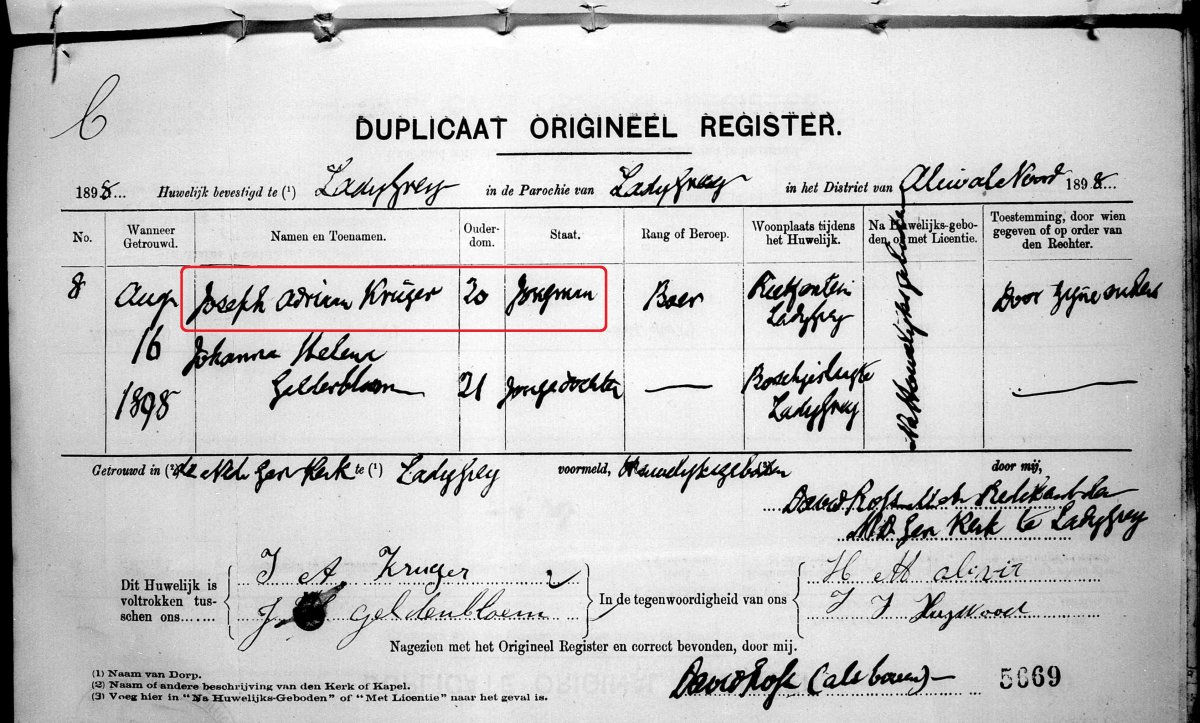 C
DUPLICAAT ORIGINEEL REGISTER.
1898... Huwelijk bevestigd te (¹) Lady Grey in de Parochie van Lady Grey in het District van Aliwal Noord 1898...
No. Wanneer Getrouwd. Namen en Toenamen. Ouder-dom. Staat. Rang of Beroep. Woonplaats tijdens het Huwelijk. Na Huwelijks-gebo-den, of met Licentie. Toestemming, door wien gegeven of op order van den Rechter.
8 Aug Joseph Adrian Kruger 20 Jongman Boer Rietfontein Door zijne ouders
Lady Grey
16 Johanna Helena
Gelderbloem 21 Jongedochter Lady Grey
1898
Na Huwelijksgeboden
Getrouwd in (²) de Ned Ger Kerk te (¹) Lady Grey voormeld, Huwelijksgeboden door mij,
David Ross
Ger Kerk te Lady Grey
Dit Huwelijk is voltrokken tus-schen ons......
J A Kruger
J Geldenbloem
In de tegenwoordigheid van ons
H M
J J
Nagezien met het Origineel Register en correct bevonden, door mij.
David Ross
5669
(1) Naam van Dorp.
(2) Naam of andere beschrijving van den Kerk of Kapel.
(3) Voeg hier in "Na Huwelijks-Geboden" of "Met Licentie" naar het geval is.